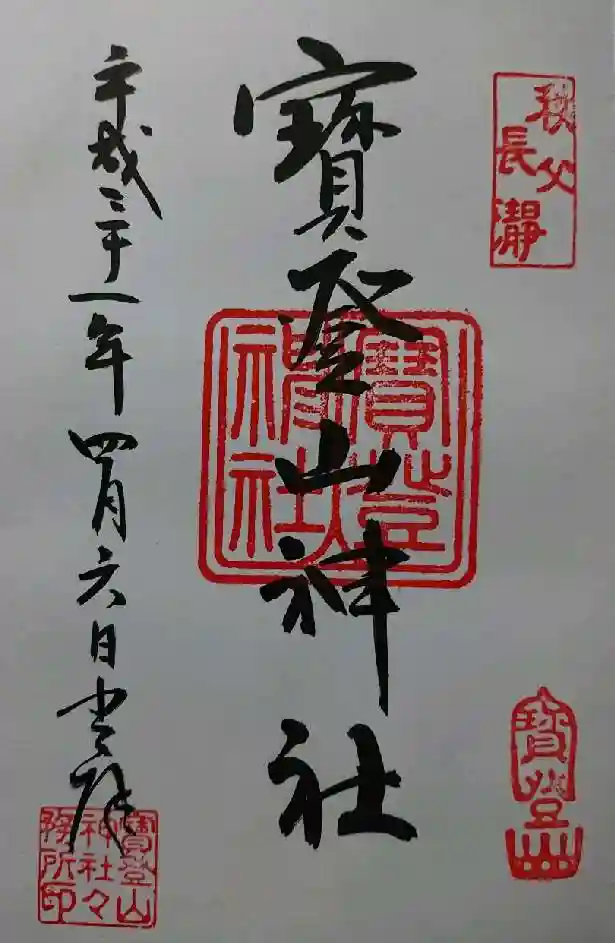 秩父
長瀞
寶登山神社
寶登山
神社
寶登山
平成三十一年四月六日
寶登山
神社々
務所印